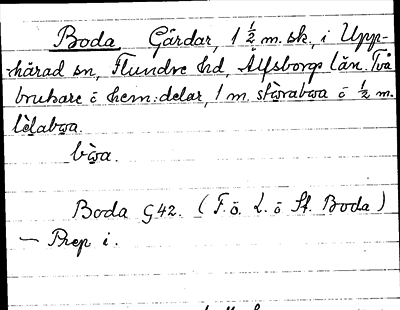 Boda Gårdar, 1 1/2 m. sk., i Upp-
härad sn, Flundre hd, Älfsborgs län. Två
brukare ō hem:delar, 1 m. stọ̀rabọa ō 1/2 m.
lèlabọa.
bọ̀a.
Boda G42. (F. ō. L. ō St. Boda)
— Prep i.